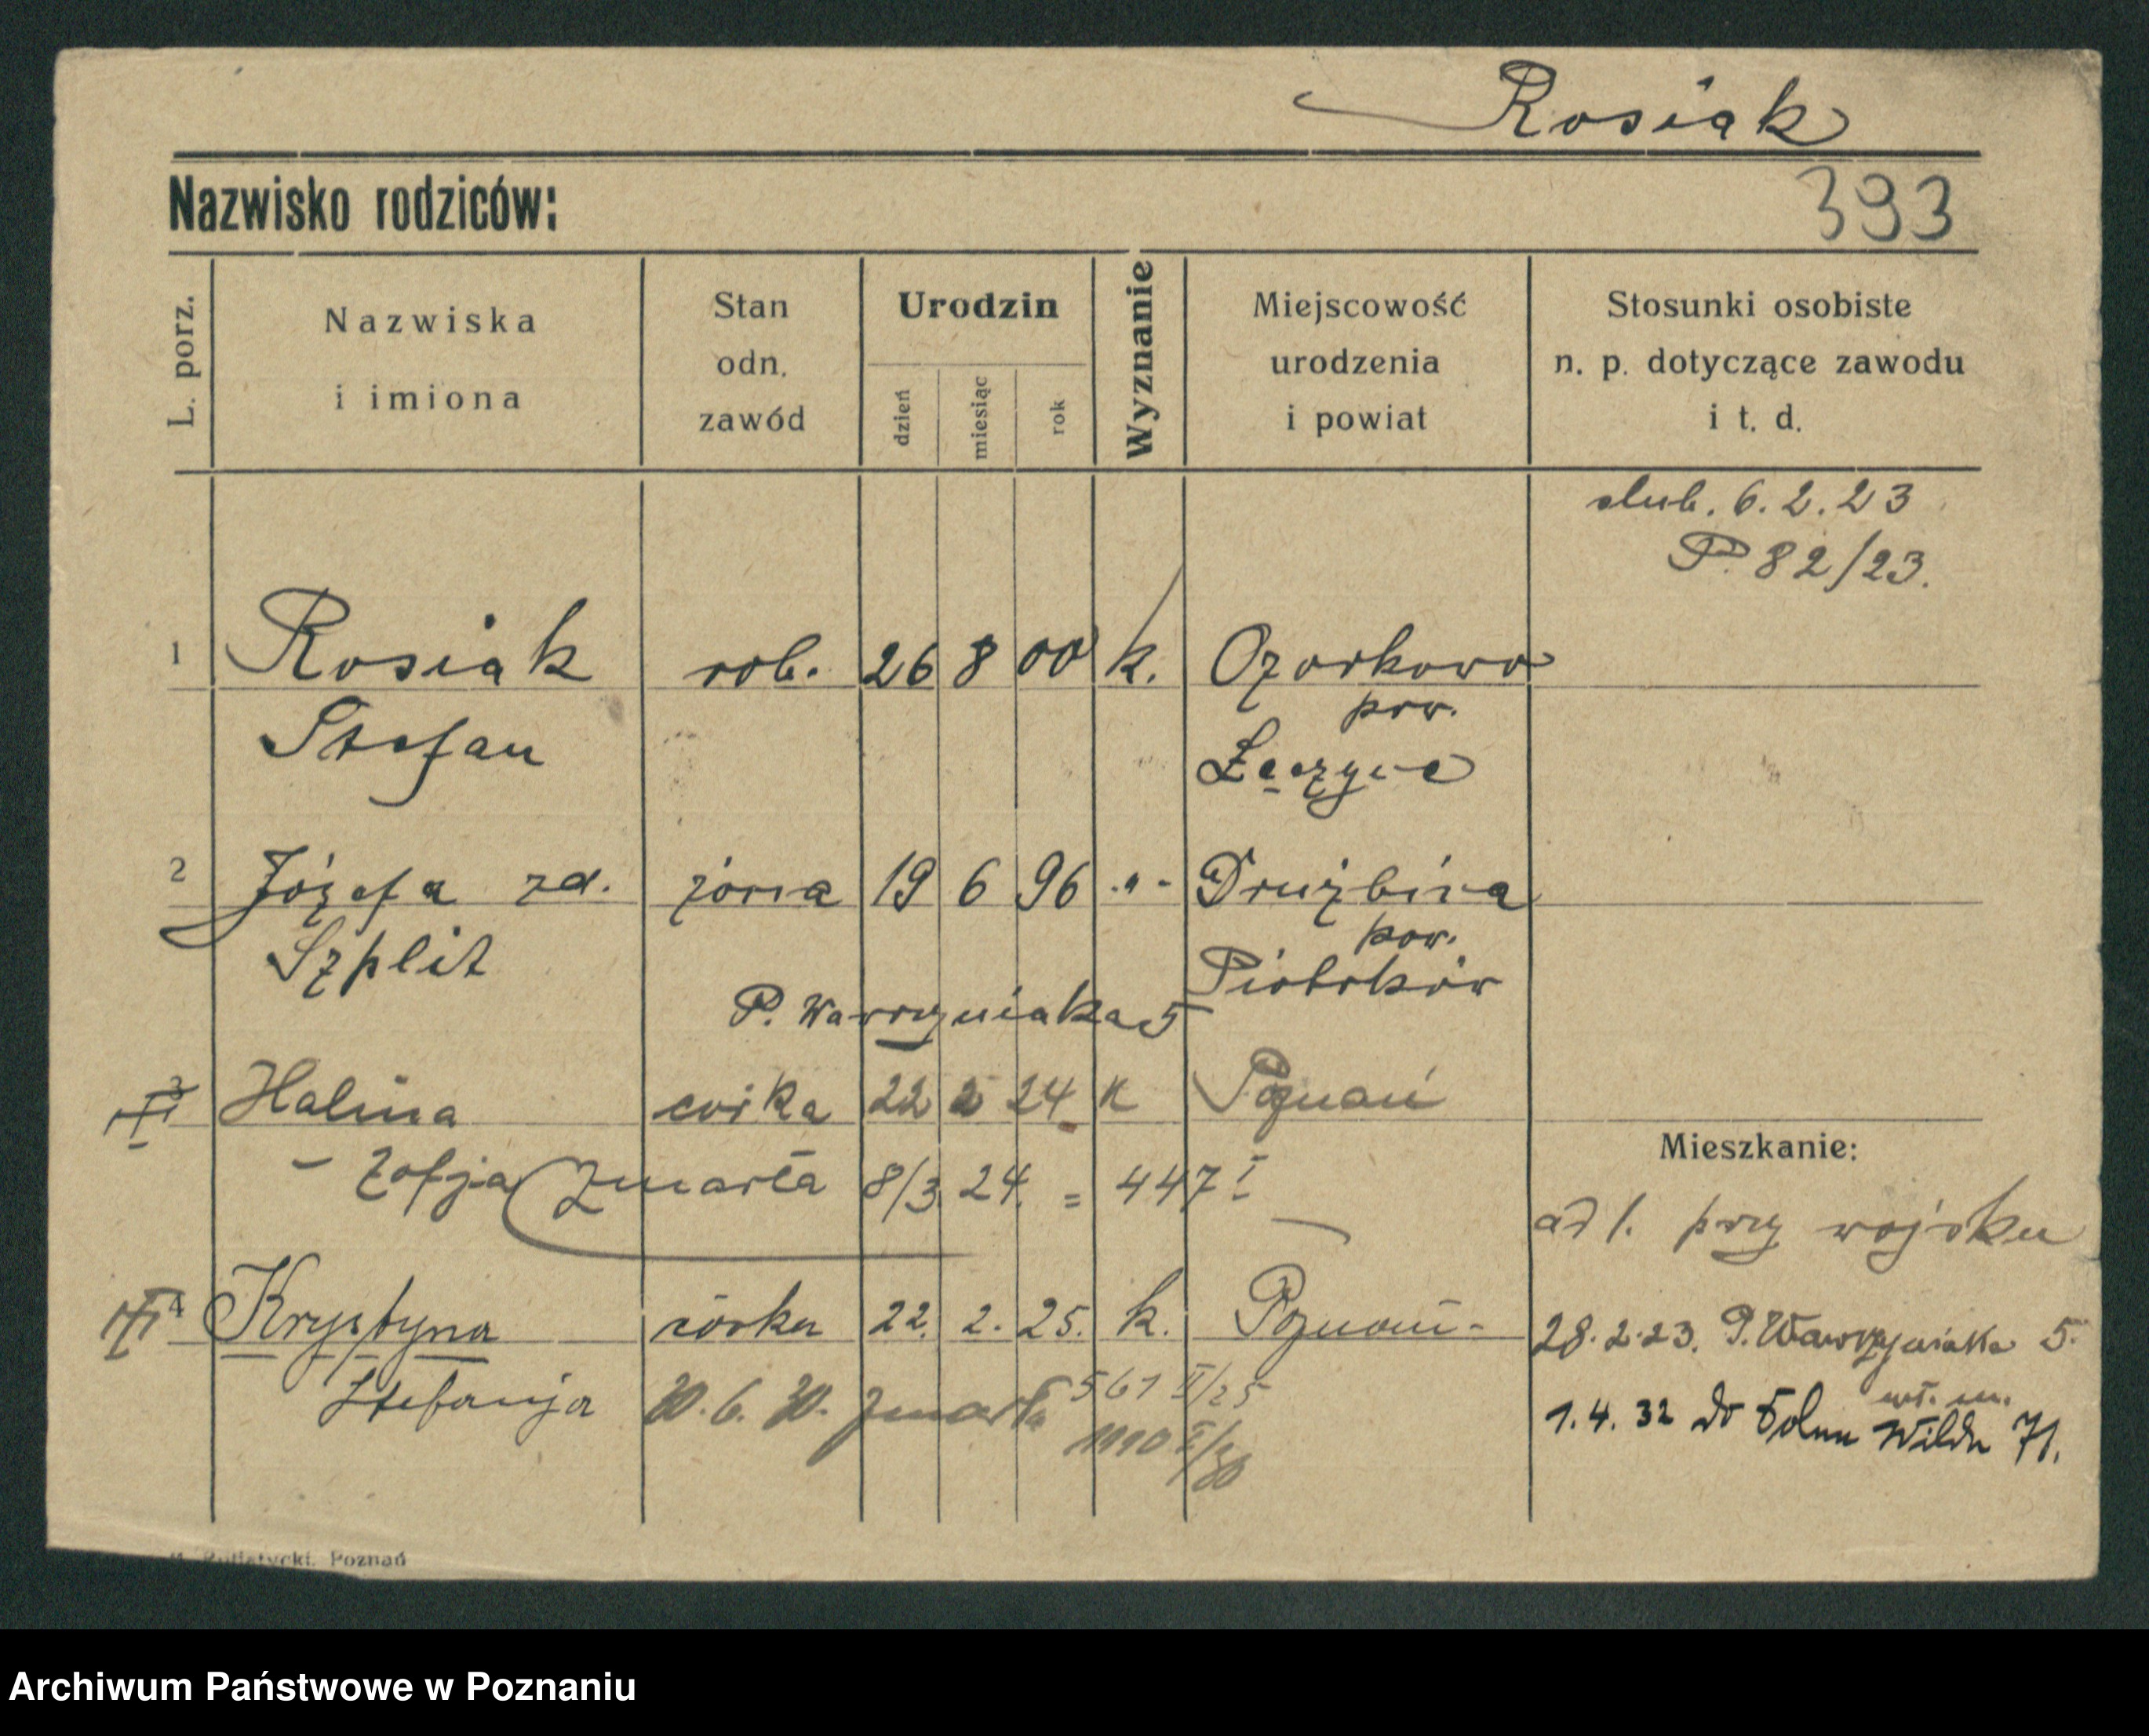 Rosiak
Nazwisko rodziców:
393
L. porz.
Nazwiska
i imiona
Stan
odn.
zawód
Urodzin
dzień
miesiąc
rok
Wyznanie
Miejscowość
urodzenia
i powiat
Stosunki osobiste
n. p. dotyczące zawodu
i t. d.
slub. 6.2.23
P. 82/23.
1 Rosiak rob. 26 8 00 k. Ozorkowo
pow.
Stefan Łęczyce
2 Józefa zd. żona 19 6 96 -"- Drużbina
pow.
Szplit Piotrków
P. Wawrzyniaka 5
3 Halina córka 22 2 24 K Poznań
Mieszkanie:
- Zofja zmarła 8/3 24. = 447 I
przy wojsku
4 Krystyna córka 22. 2. 25. k. Poznań -
28.2.23. P. Wawrzyniaka 5.
Stefanja 30.6.30. zmarła 561 II/25
1110 I/30
1.4.32 do Dolna Wilda 71.
Poznań
Archiwum Państwowe w Poznaniu